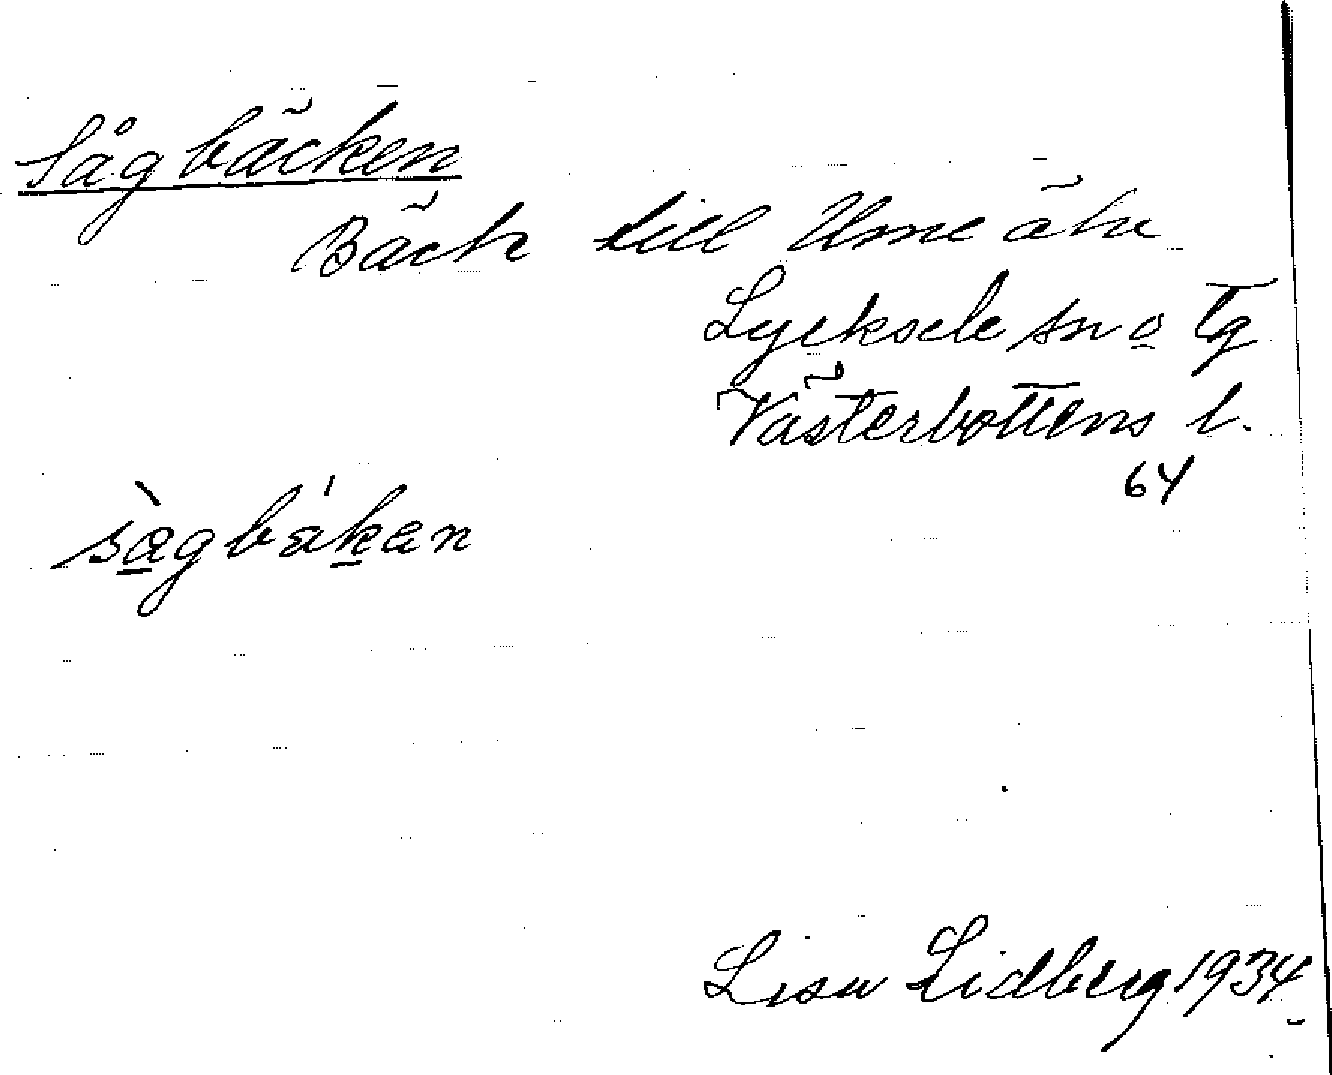 Sågbäcken
Bäck till Ume älv
Lycksele sn o Tg
Västerbottens l.
64
sàgbákan
Lisa Lidberg 1934